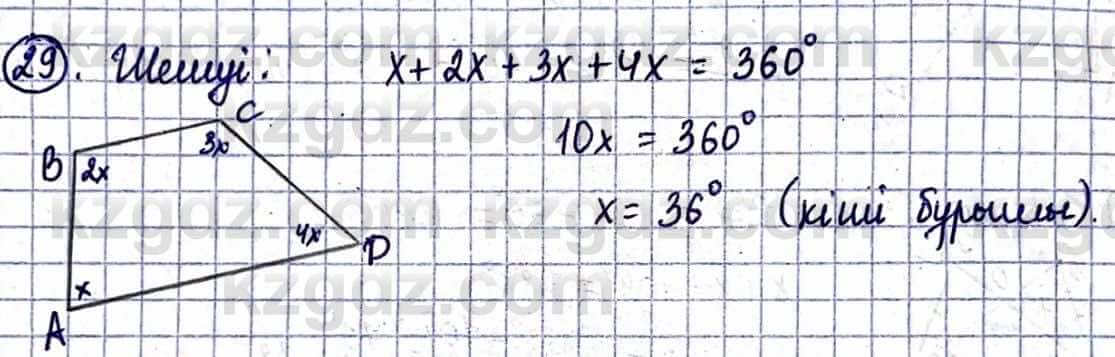 29. Шешуі: x + 2x + 3x + 4x = 360°
10x = 360°
x = 36° (кіші бұрышы).
C
3x
B 2x
4x D
x
A
kzgdz.com kzgdz.com kzgdz.com
kzgdz.com
kzgdz.com kzgdz.com kzgdz.com
kzgdz.com